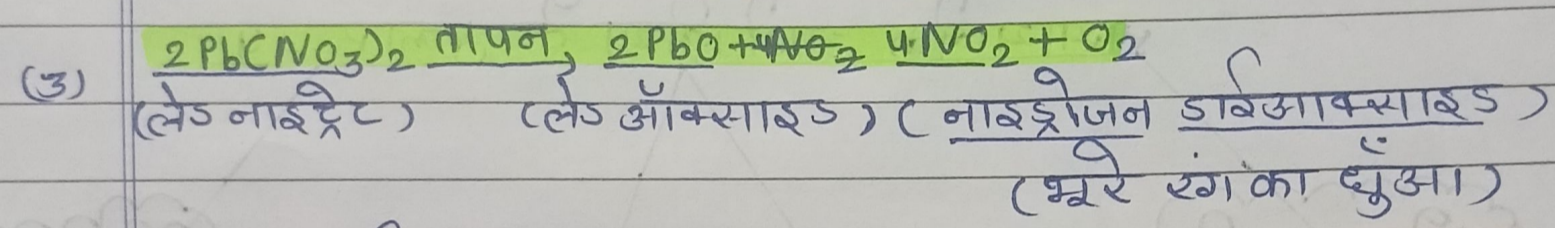 (3) 2Pb(NO₃)₂ तापन, 2PbO + 4NO₂ 4NO₂ + O₂
(लेड नाइट्रेट) (लेड ऑक्साइड) (नाइट्रोजन डाईआक्साइड)
(भूरे रंग का धुँआ)